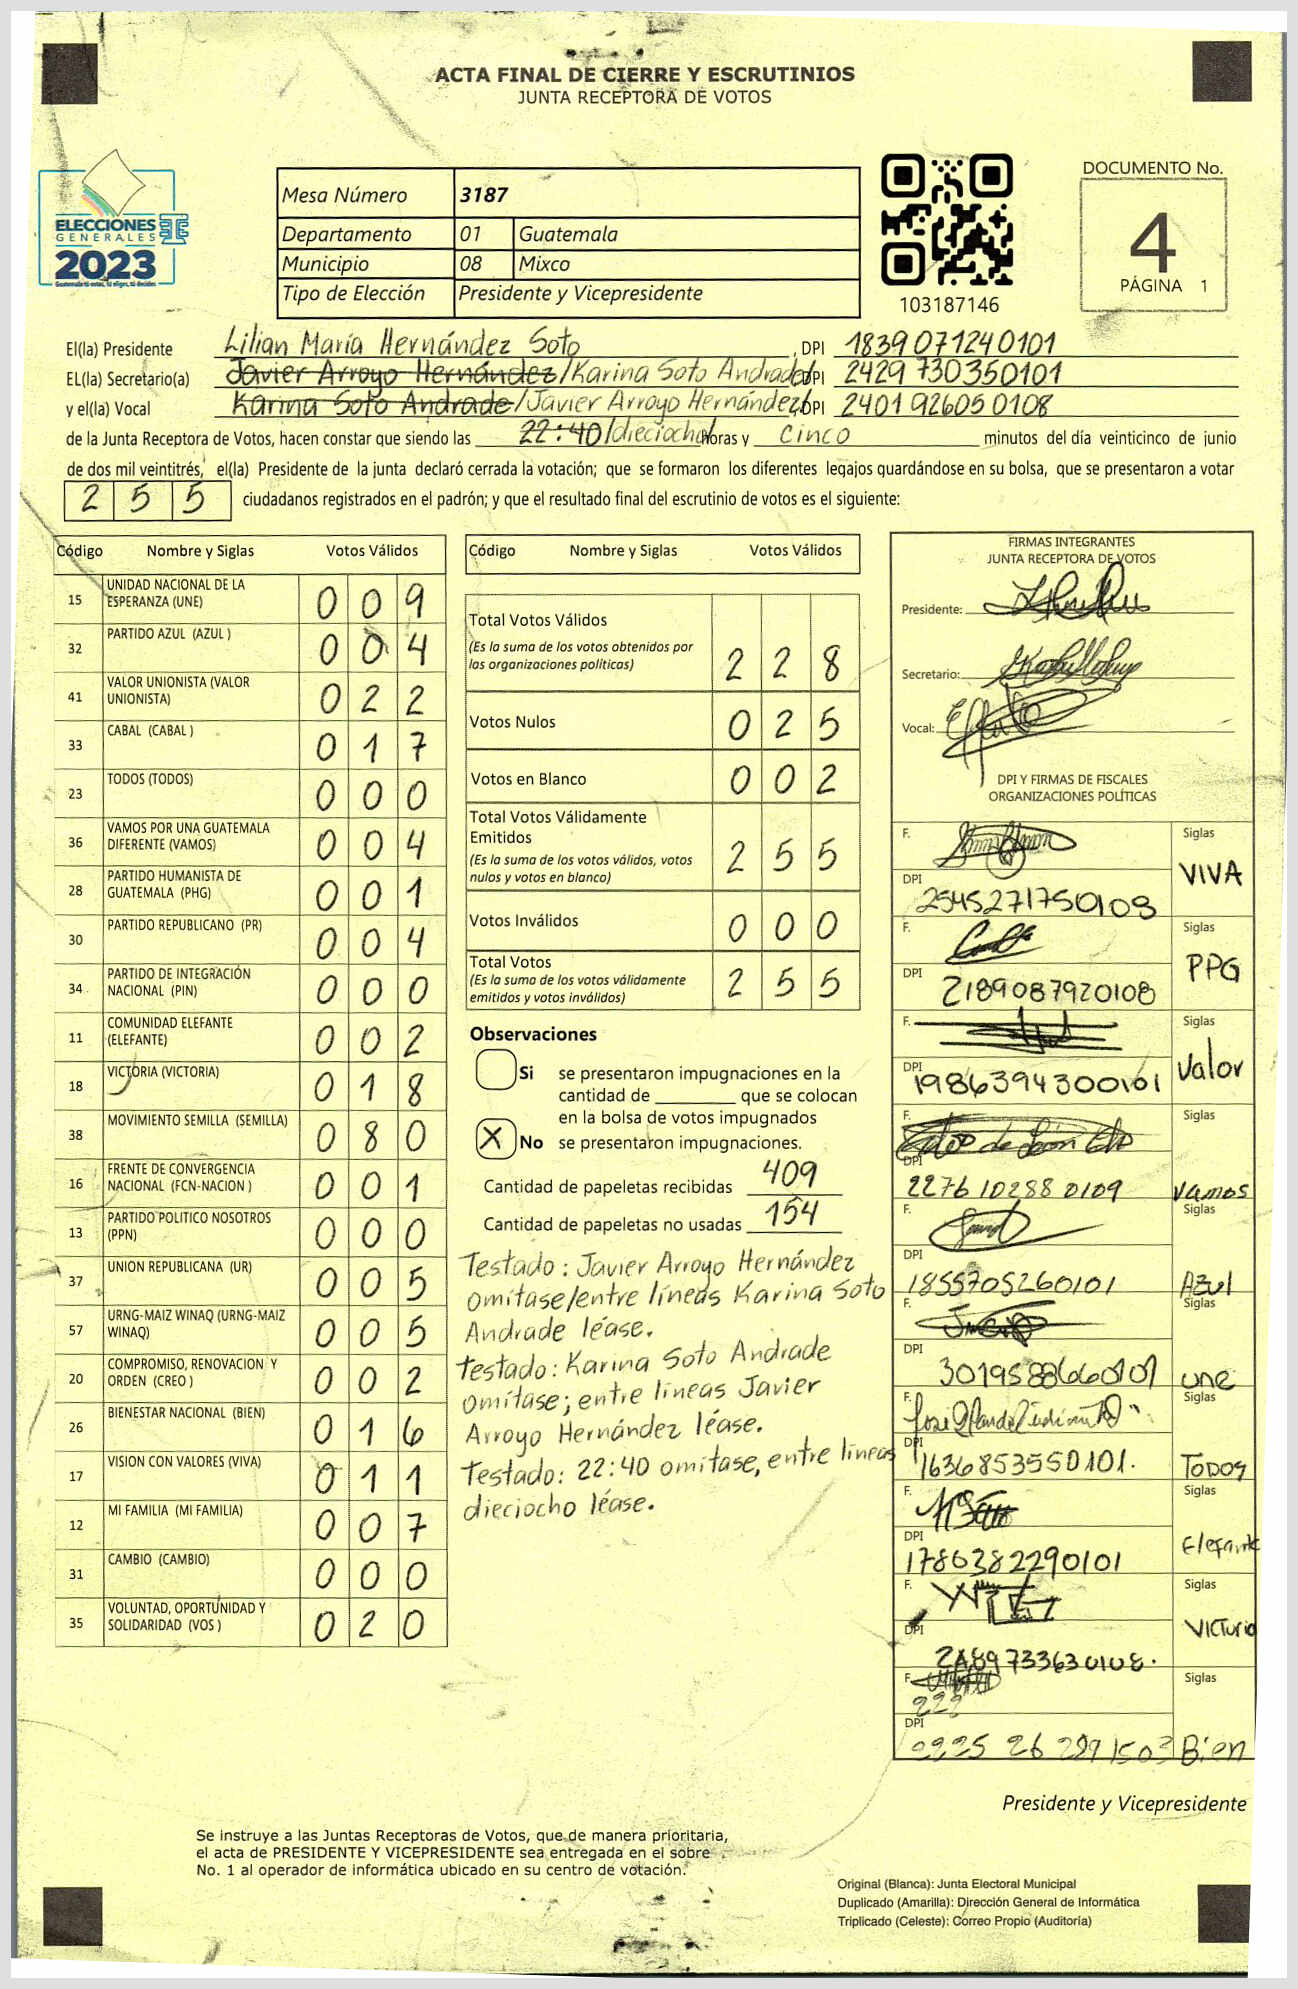 ACTA FINAL DE CIERRE Y ESCRUTINIOS
JUNTA RECEPTORA DE VOTOS
ELECCIONES
GENERALES
2023
Mesa Número 3187
Departamento 01 Guatemala
Municipio 08 Mixco
Tipo de Elección Presidente y Vicepresidente
103187146
DOCUMENTO No.
4
PÁGINA 1
El(la) Presidente Lilian María Hernández Soto, DPI 1839071240101
EL(la) Secretario(a) Javier Arroyo Hernández/Karina Soto Andrade, DPI 2429730350101
y el(la) Vocal Karina Soto Andrade/Javier Arroyo Hernández, DPI 2401926050108
de la Junta Receptora de Votos, hacen constar que siendo las 22:40/dieciocho horas y cinco minutos del día veinticinco de junio
de dos mil veintitrés, el(la) Presidente de la junta declaró cerrada la votación; que se formaron los diferentes legajos guardándose en su bolsa, que se presentaron a votar
255 ciudadanos registrados en el padrón; y que el resultado final del escrutinio de votos es el siguiente:
Código Nombre y Siglas Votos Válidos
15 UNIDAD NACIONAL DE LA ESPERANZA (UNE) 009
32 PARTIDO AZUL (AZUL ) 004
41 VALOR UNIONISTA (VALOR UNIONISTA) 022
33 CABAL (CABAL ) 017
23 TODOS (TODOS) 000
36 VAMOS POR UNA GUATEMALA DIFERENTE (VAMOS) 004
28 PARTIDO HUMANISTA DE GUATEMALA (PHG) 001
30 PARTIDO REPUBLICANO (PR) 004
34 PARTIDO DE INTEGRACIÓN NACIONAL (PIN) 000
11 COMUNIDAD ELEFANTE (ELEFANTE) 002
18 VICTORIA (VICTORIA) 018
38 MOVIMIENTO SEMILLA (SEMILLA) 080
16 FRENTE DE CONVERGENCIA NACIONAL (FCN-NACION ) 001
13 PARTIDO POLITICO NOSOTROS (PPN) 000
37 UNION REPUBLICANA (UR) 005
57 URNG-MAIZ WINAQ (URNG-MAIZ WINAQ) 005
20 COMPROMISO, RENOVACION Y ORDEN (CREO ) 002
26 BIENESTAR NACIONAL (BIEN) 016
17 VISION CON VALORES (VIVA) 011
12 MI FAMILIA (MI FAMILIA) 007
31 CAMBIO (CAMBIO) 000
35 VOLUNTAD, OPORTUNIDAD Y SOLIDARIDAD (VOS ) 020
Código Nombre y Siglas Votos Válidos
Total Votos Válidos 228
(Es la suma de los votos obtenidos por
las organizaciones políticas)
Votos Nulos 025
Votos en Blanco 002
Total Votos Válidamente
Emitidos 255
(Es la suma de los votos válidos, votos
nulos y votos en blanco)
Votos Inválidos 000
Total Votos 255
(Es la suma de los votos válidamente
emitidos y votos inválidos)
Observaciones
Si se presentaron impugnaciones en la
cantidad de ________ que se colocan
en la bolsa de votos impugnados
X No se presentaron impugnaciones.
Cantidad de papeletas recibidas 409
Cantidad de papeletas no usadas 154
Testado: Javier Arroyo Hernández
omítase/entre líneas Karina Soto
Andrade léase.
Testado: Karina Soto Andrade
omítase; entre líneas Javier
Arroyo Hernández léase.
Testado: 22:40 omítase, entre líneas
dieciocho léase.
FIRMAS INTEGRANTES
JUNTA RECEPTORA DE VOTOS
Presidente:
Secretario:
Vocal:
DPI Y FIRMAS DE FISCALES
ORGANIZACIONES POLÍTICAS
F. Siglas VIVA
DPI 2545271750103
F. Siglas PPG
DPI 2189087920108
F. Siglas Valor
DPI 1986394300101
F. Siglas Vamos
DPI 2276102880109
F. Siglas AZUL
DPI 1855705260101
F. Siglas une
DPI 3019588660101
F. Siglas TODOS
DPI 1636853550101.
F. Siglas Elefante
DPI 1786382290101
F. Siglas Victoria
DPI
F. Siglas Bien
222
DPI
Presidente y Vicepresidente
Se instruye a las Juntas Receptoras de Votos, que de manera prioritaria,
el acta de PRESIDENTE Y VICEPRESIDENTE sea entregada en el sobre
No. 1 al operador de informática ubicado en su centro de votación.
Original (Blanca): Junta Electoral Municipal
Duplicado (Amarilla): Dirección General de Informática
Triplicado (Celeste): Correo Propio (Auditoría)